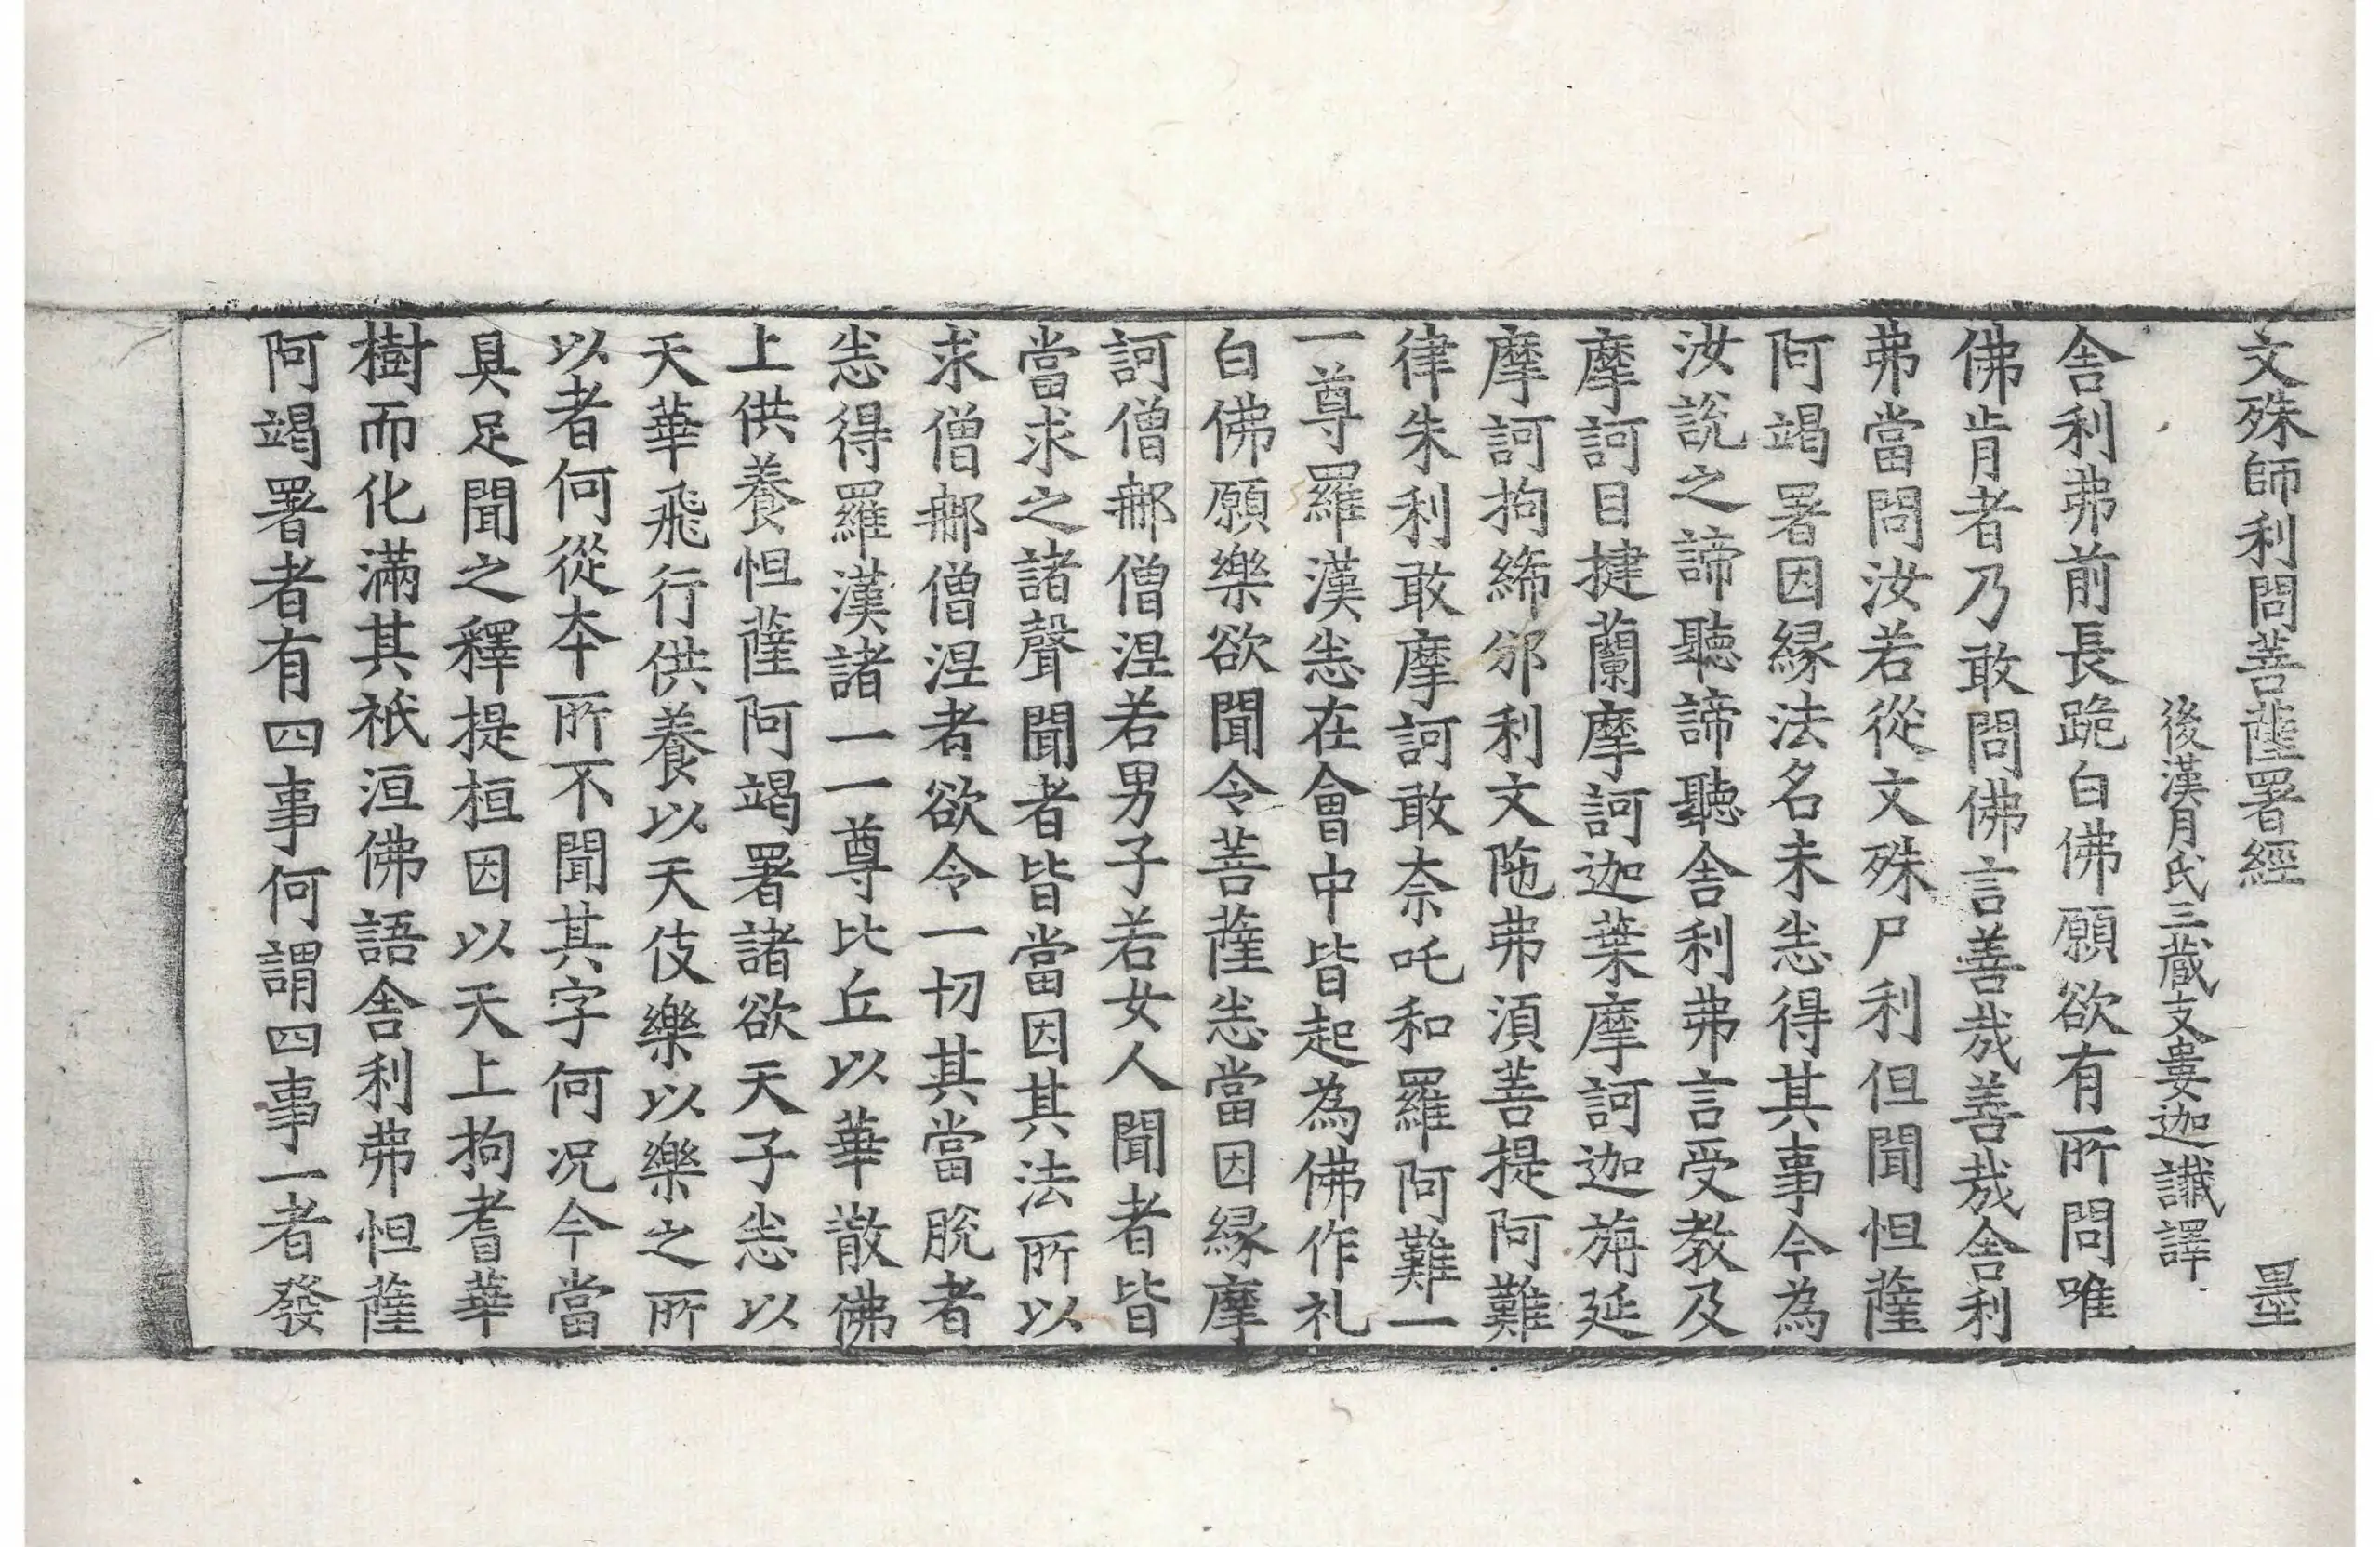 文殊師利問菩薩署經　墨
後漢月氏三藏支婁迦讖譯
舍利弗前長跪白佛願欲有所問唯
佛肯者乃敢問佛言善㦲善㦲舍利
弗當問汝若從文殊尸利但聞怛薩
阿竭署因縁法名未悉得其事今為
汝說之諦聽諦聽舍利弗言受教及
摩訶目揵蘭摩訶迦葉摩訶迦旃延
摩訶拘絺邠利文陁弗湏菩提阿難
律朱利敢摩訶敢奈吒和羅阿難一
一尊羅漢悉在會中皆起為佛作礼
白佛願樂欲聞令菩薩悉當因縁摩
訶僧𨚗僧涅若男子若女人聞者皆
當求之諸聲聞者皆當因其法所以
求僧𨚗僧涅者欲令一切其當脫者
悉得羅漢諸一一尊比丘以華散佛
上供養怛薩阿竭署諸欲天子悉以
天華飛行供養以天伎樂以樂之所
以者何從本所不聞其字何况今當
具足聞之釋提桓因以天上拘耆華
樹而化滿其祇洹佛語舍利弗怛薩
阿竭署者有四事何謂四事一者發